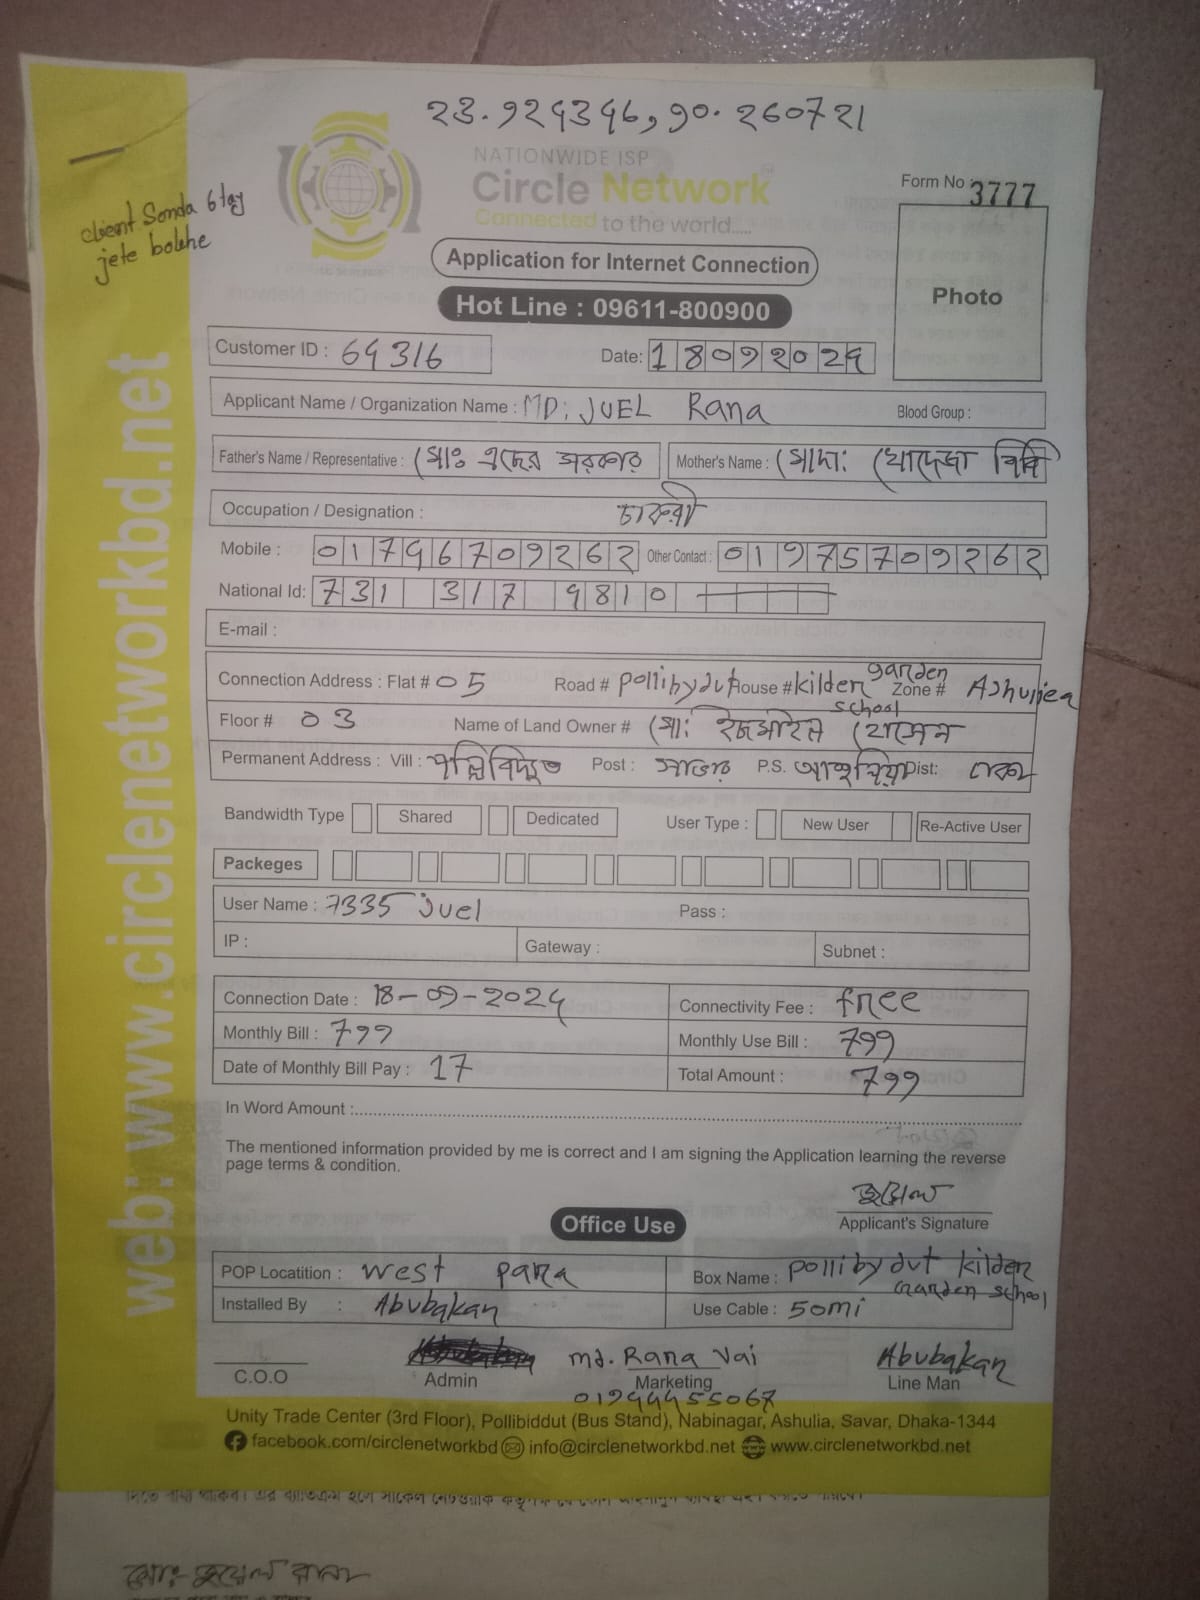 23.924346, 90.260721
NATIONWIDE ISP
Circle Network
Connected to the world.....
Form No : 3777
client Sonda 6 tay
jete bolche
Application for Internet Connection
Photo
Hot Line : 09611-800900
Customer ID : 64316
Date: 18092024
Applicant Name / Organization Name : MD: JUEL Rana
Blood Group :
Father's Name / Representative : মোঃ এদের সরকার
Mother's Name : মোসা: খোদেজা বিবি
Occupation / Designation : চাকরী
Mobile : 01746709262 Other Contact : 01975709262
National Id: 731 317 9810
E-mail :
Connection Address : Flat # 05 Road # pollibydut House # kilden garden school Zone # Ashuliea
Floor # 03 Name of Land Owner # মো: হোসেন
Permanent Address : Vill : পল্লিবিদ্যুত Post : সাভার P.S. আশুলিয়া Dist: ঢাকা
Bandwidth Type Shared Dedicated User Type : New User Re-Active User
Packeges
User Name : 7335 juel Pass :
IP : Gateway : Subnet :
Connection Date : 18-09-2024 Connectivity Fee : free
Monthly Bill : 799 Monthly Use Bill : 799
Date of Monthly Bill Pay : 17 Total Amount : 799
In Word Amount :
The mentioned information provided by me is correct and I am signing the Application learning the reverse
page terms & condition.
জুয়েল
Applicant's Signature
Office Use
POP Locatition : West para Box Name : pollibydut kilden Garden school
Installed By : Abubakar Use Cable : 50mi
md. Rana Vai Abubakar
C.O.O Admin Marketing Line Man
01944455067
Unity Trade Center (3rd Floor), Pollibiddut (Bus Stand), Nabinagar, Ashulia, Savar, Dhaka-1344
facebook.com/circlenetworkbd info@circlenetworkbd.net www.circlenetworkbd.net
web: www.circlenetworkbd.net
মোঃ জুয়েল রানা